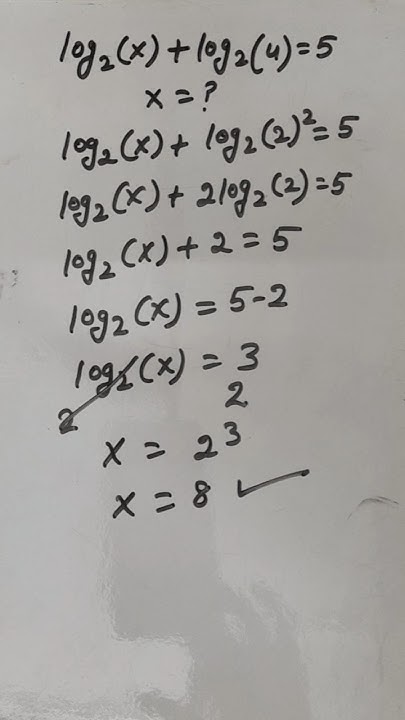 log₂(x) + log₂(4) = 5
x = ?
log₂(x) + log₂(2)² = 5
log₂(x) + 2log₂(2) = 5
log₂(x) + 2 = 5
log₂(x) = 5-2
log₂(x) = 3
2 2
x = 2³
x = 8 ✓